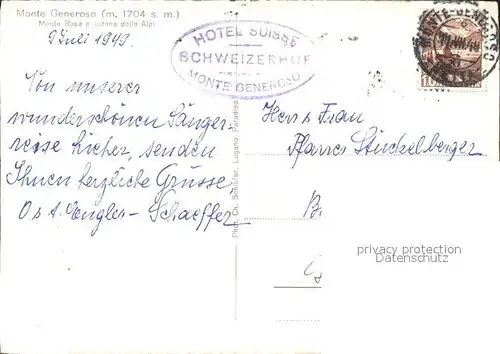 Monte Generoso (m. 1704 s. m.)
Monte Rosa e catena delle Alpi
9 Juli 1949.
HOTEL SUISSE
SCHWEIZERHOF
MONTE GENEROSO
MONTE-GENEROSO
10
Von unserer
wunderschönen Sänger-
reise hieher, senden
Ihnen herzliche Grüsse
A. Engler-Schaeffer
Herr & Frau
Pfarrer Stückelberger
B
Phot. Ch. Schiefer, Lugano Paradiso
privacy protection
AnsichtskartenVersand.com